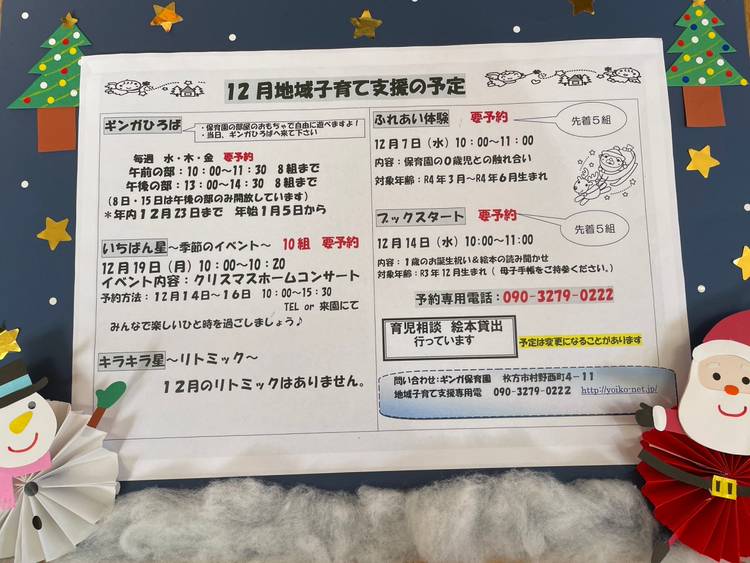 12月地域子育て支援の予定
ギンガひろば
・保育園の部屋のおもちゃで自由に遊べますよ！
・当日、ギンガひろばへ来て下さい
毎週 水・木・金 要予約
午前の部：10：00～11：30 8組まで
午後の部：13：00～14：30 8組まで
（8日・15日は午後の部のみ開放しています）
＊年内12月23日まで 年始1月5日から
いちばん星～季節のイベント～ 10組 要予約
12月19日（月）10：00～10：20
イベント内容：クリスマスホームコンサート
予約方法：12月14日～16日 10：00～15：30
TEL or 来園にて
みんなで楽しいひと時を過ごしましょう♪
キラキラ星～リトミック～
12月のリトミックはありません。
ふれあい体験 要予約
先着5組
12月7日（水）10：00～11：00
内容：保育園の0歳児との触れ合い
対象年齢：R4年3月～R4年6月生まれ
ブックスタート 要予約
先着5組
12月14日（水）10:00～11:00
内容：1歳のお誕生祝い＆絵本の読み聞かせ
対象年齢：R3年12月生まれ（母子手帳をご持参ください。）
予約専用電話：090-3279-0222
育児相談 絵本貸出
行っています
予定は変更になることがあります
問い合わせ：ギンガ保育園 枚方市村野西町4－11
地域子育て支援専用電 090-3279-0222 http://yoiko-net.jp/